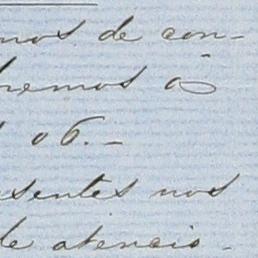 mos de con-
hremos o
s o 6.-
sentes nos
de atencio-